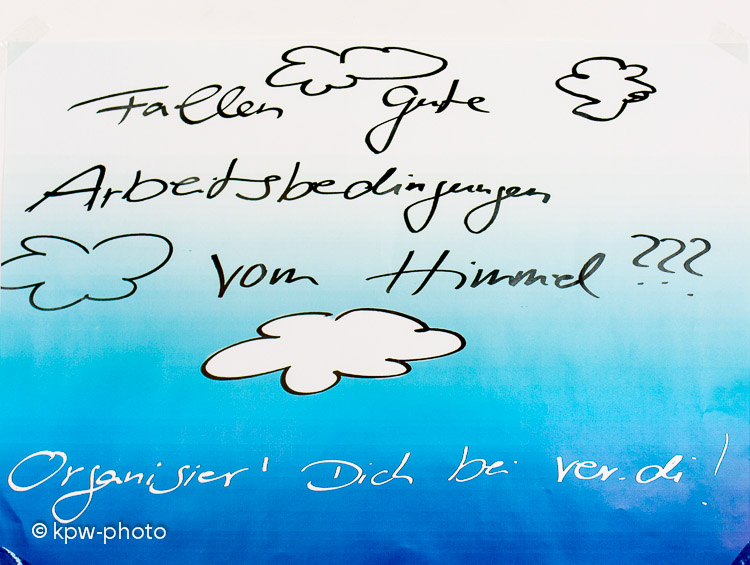 Fallen gute
Arbeitsbedingungen
vom Himmel ???
Organisier' Dich bei ver.di!
© kpw-photo